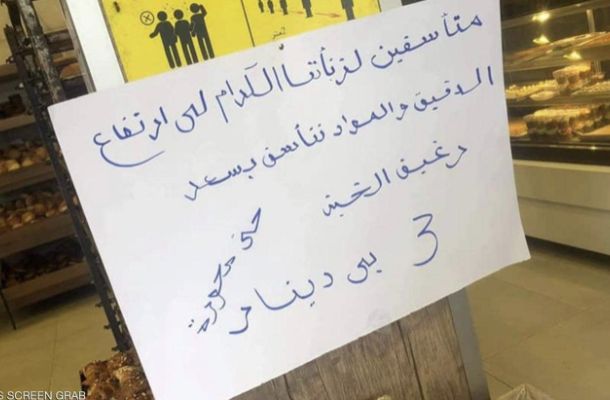 متأسفين لزبائننا الكرام لى ارتفاع
الدقيق والمواد نتأسف بسعر
رغيف الخبز
3 بى دينار
S SCREEN GRAB